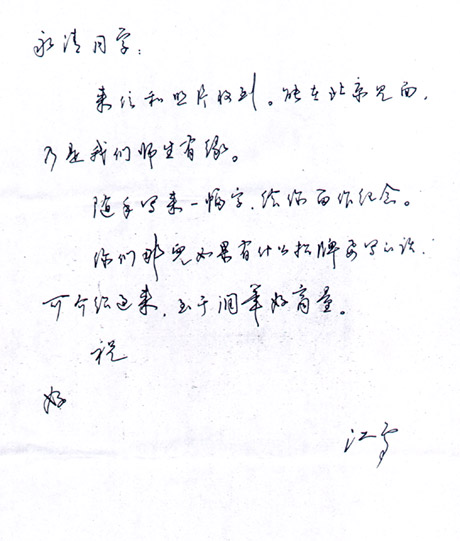 永清同学：
来信和照片收到。能在北京见面，
乃是我们师生有缘。
随手写来一幅字，给你留作纪念。
你们那儿如果有什么招牌要写的话，
可介绍过来，至于润笔好商量。
祝
好
江